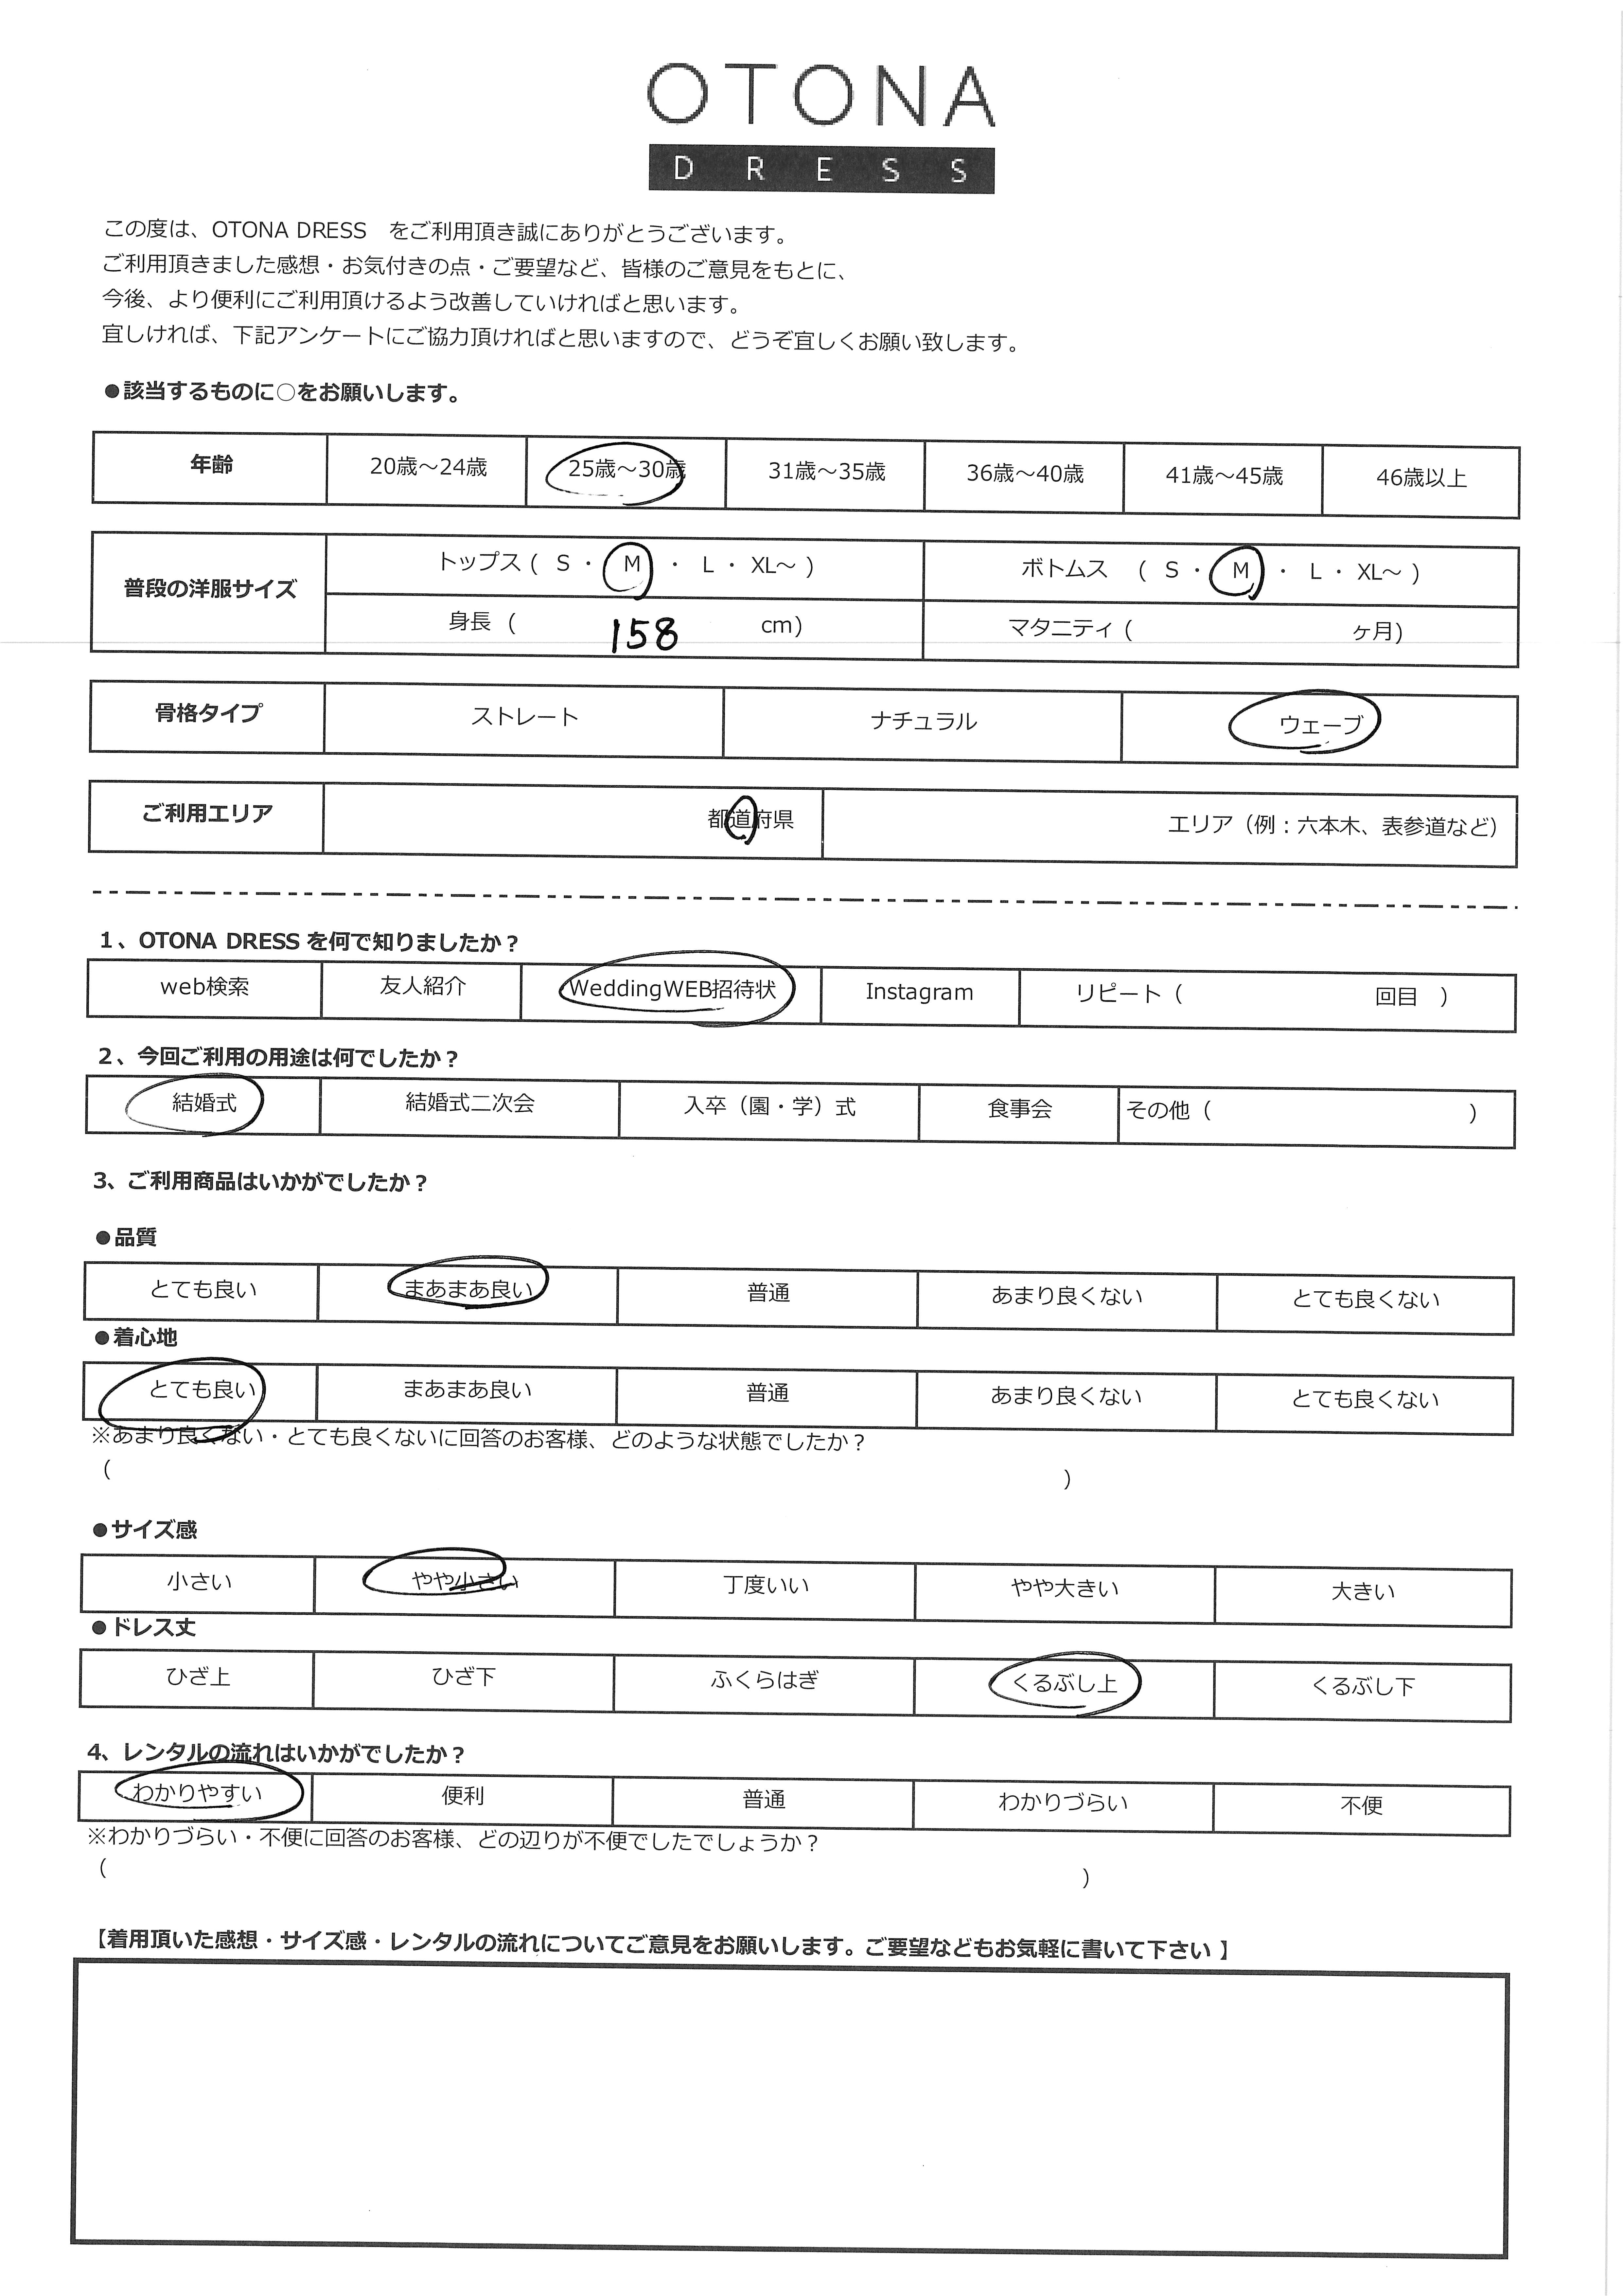 OTONA
DRESS
この度は、OTONA DRESS　をご利用頂き誠にありがとうございます。
ご利用頂きました感想・お気付きの点・ご要望など、皆様のご意見をもとに、
今後、より便利にご利用頂けるよう改善していければと思います。
宜しければ、下記アンケートにご協力頂ければと思いますので、どうぞ宜しくお願い致します。
●該当するものに○をお願いします。
年齢 20歳～24歳 25歳～30歳 31歳～35歳 36歳～40歳 41歳～45歳 46歳以上
普段の洋服サイズ トップス ( S ・ M ・ L ・ XL～ ) ボトムス ( S ・ M ・ L ・ XL～ )
身長 ( 158 cm) マタニティ ( ヶ月)
骨格タイプ ストレート ナチュラル ウェーブ
ご利用エリア 都道府県 エリア（例：六本木、表参道など）
1、OTONA DRESS を何で知りましたか？
web検索 友人紹介 WeddingWEB招待状 Instagram リピート（ 回目 ）
2、今回ご利用の用途は何でしたか？
結婚式 結婚式二次会 入卒（園・学）式 食事会 その他（ ）
3、ご利用商品はいかがでしたか？
●品質
とても良い まあまあ良い 普通 あまり良くない とても良くない
●着心地
とても良い まあまあ良い 普通 あまり良くない とても良くない
※あまり良くない・とても良くないに回答のお客様、どのような状態でしたか？
（ ）
●サイズ感
小さい やや小さい 丁度いい やや大きい 大きい
●ドレス丈
ひざ上 ひざ下 ふくらはぎ くるぶし上 くるぶし下
4、レンタルの流れはいかがでしたか？
わかりやすい 便利 普通 わかりづらい 不便
※わかりづらい・不便に回答のお客様、どの辺りが不便でしたでしょうか？
（ ）
【着用頂いた感想・サイズ感・レンタルの流れについてご意見をお願いします。ご要望などもお気軽に書いて下さい 】